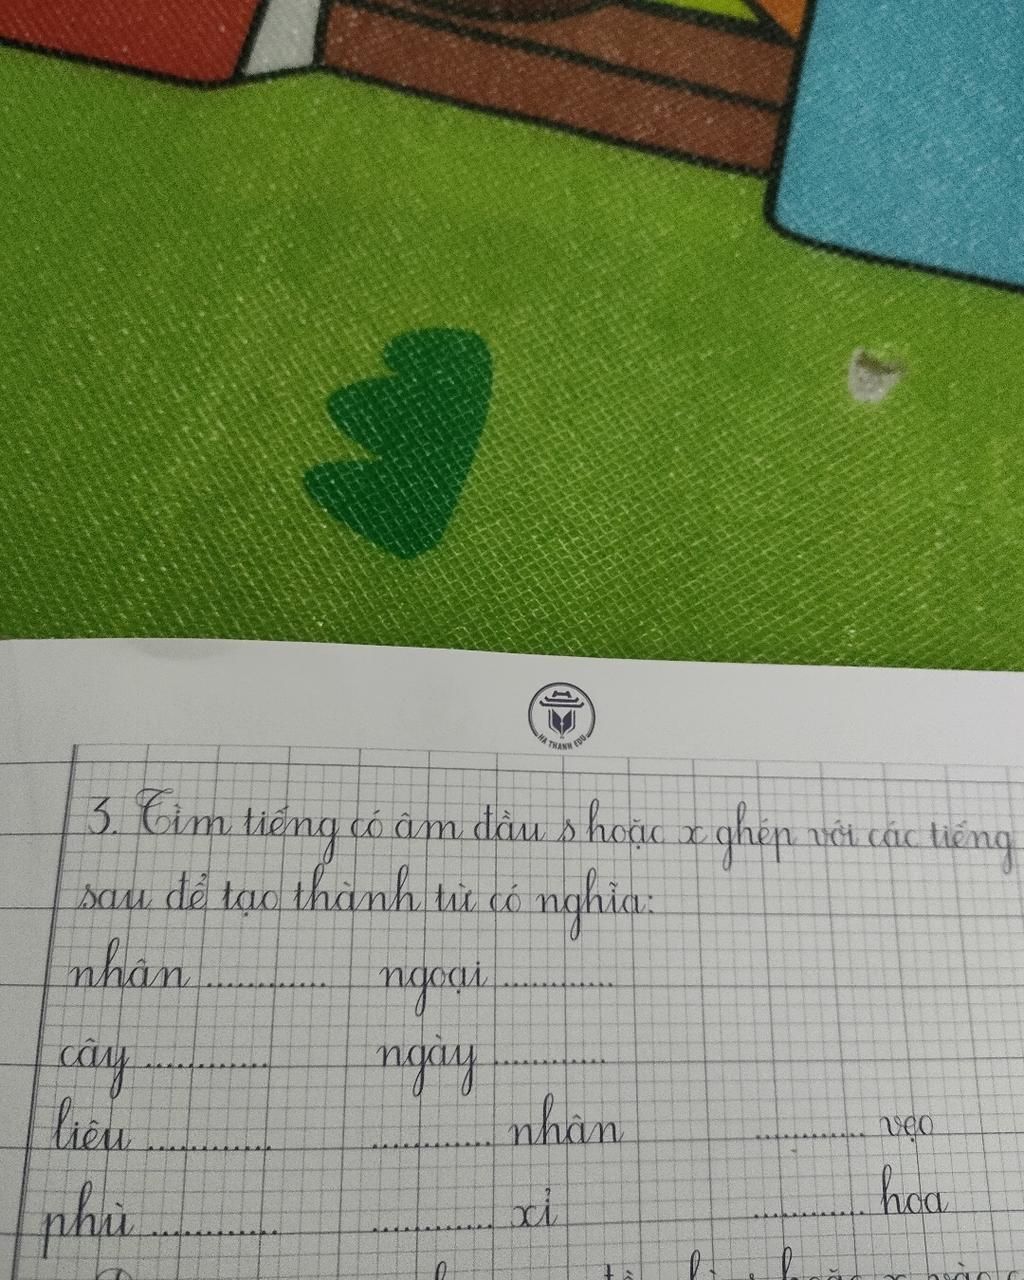 HA THANH EDU
3. Tìm tiếng có âm đầu s hoặc x ghép với các tiếng
sau để tạo thành từ có nghĩa:
nhân ............ ngoại ............
cây ............ ngày ............
liêu ............ ............ nhân ............ vẹo
phù ............ ............ xỉ ............ hoa